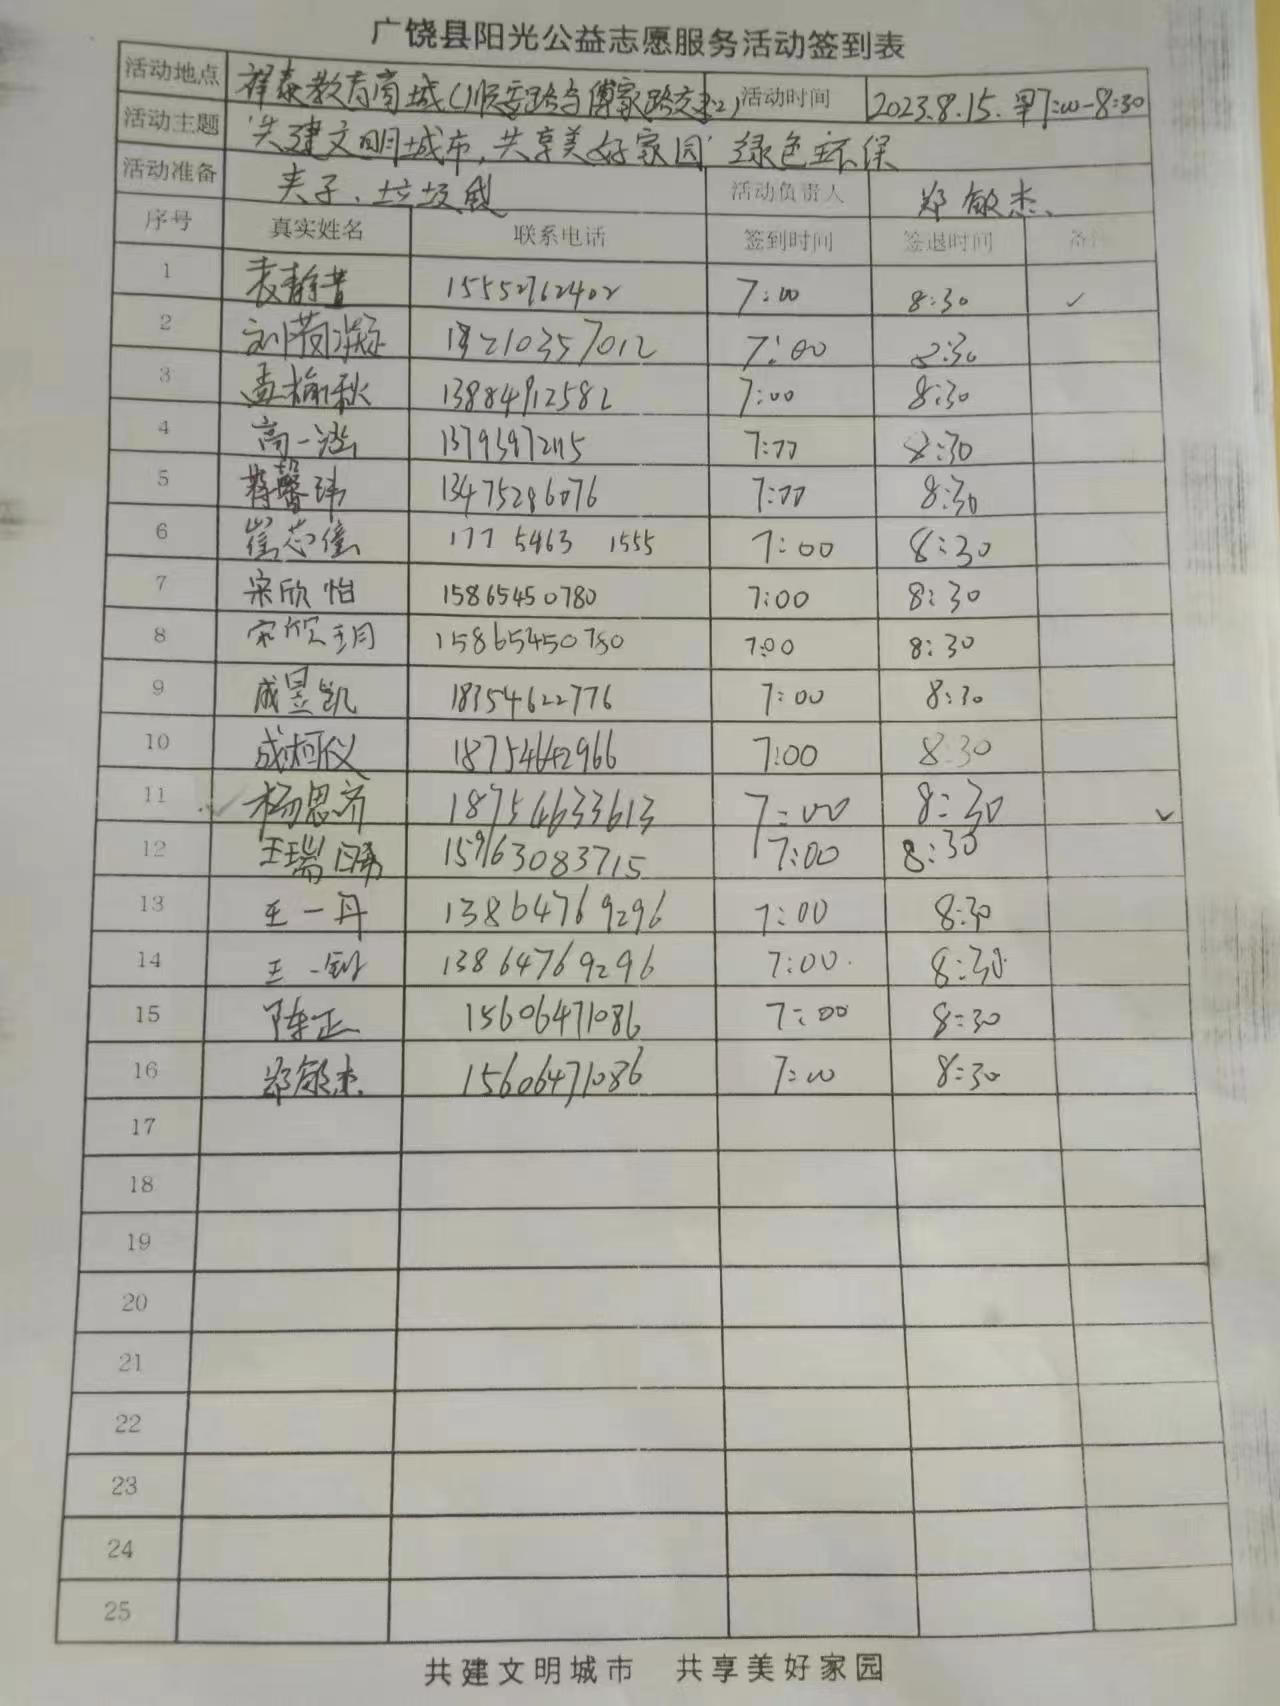 广饶县阳光公益志愿服务活动签到表
活动地点 祥泰教育商城(顺安路与傅家路交 活动时间 2023.8.15.早7:00-8:30
活动主题 "共建文明城市,共享美好家园"绿色环保
活动准备 夹子、垃圾袋 活动负责人 郑敏杰、
序号 真实姓名 联系电话 签到时间 签退时间 备注
1 袁静普 15552762402 7:00 8:30 ✓
2 刘 凝 7:00 8:30
3 孟榆秋 13884912582 7:00 8:30
4 高一 7:00 8:30
5 蒋馨玮 13475286076 7:00 8:30
6 崔芯 177 5463 1555 7:00 8:30
7 宋欣怡 15865450780 7:00 8:30
8 宋欣玥 15865450780 7:00 8:30
9 成昱凯 18354622776 7:00 8:30
10 成柯仪 18754642966 7:00 8:30
11 杨思齐 18754633613 7:00 8:30 ✓
12 王瑞 15963083715 7:00 8:30
13 王一丹 13864769296 7:00 8:30
14 王一 13864769296 7:00 8:30
15 陈正 15606471086 7:00 8:30
16 郑敏杰 15606471086 7:00 8:30
17
18
19
20
21
22
23
24
25
共建文明城市 共享美好家园